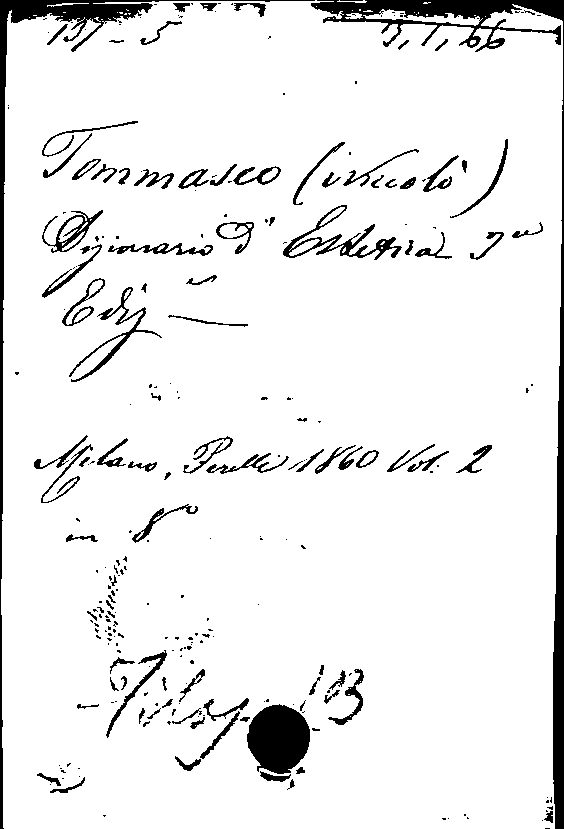 137-5 3, 1, 66
Tommaseo (Niccolò)
Dizionario d'Estetica 3ª
Ediz
Milano, Perelli 1860 Vol. 2
in 8º
Filog. 1B